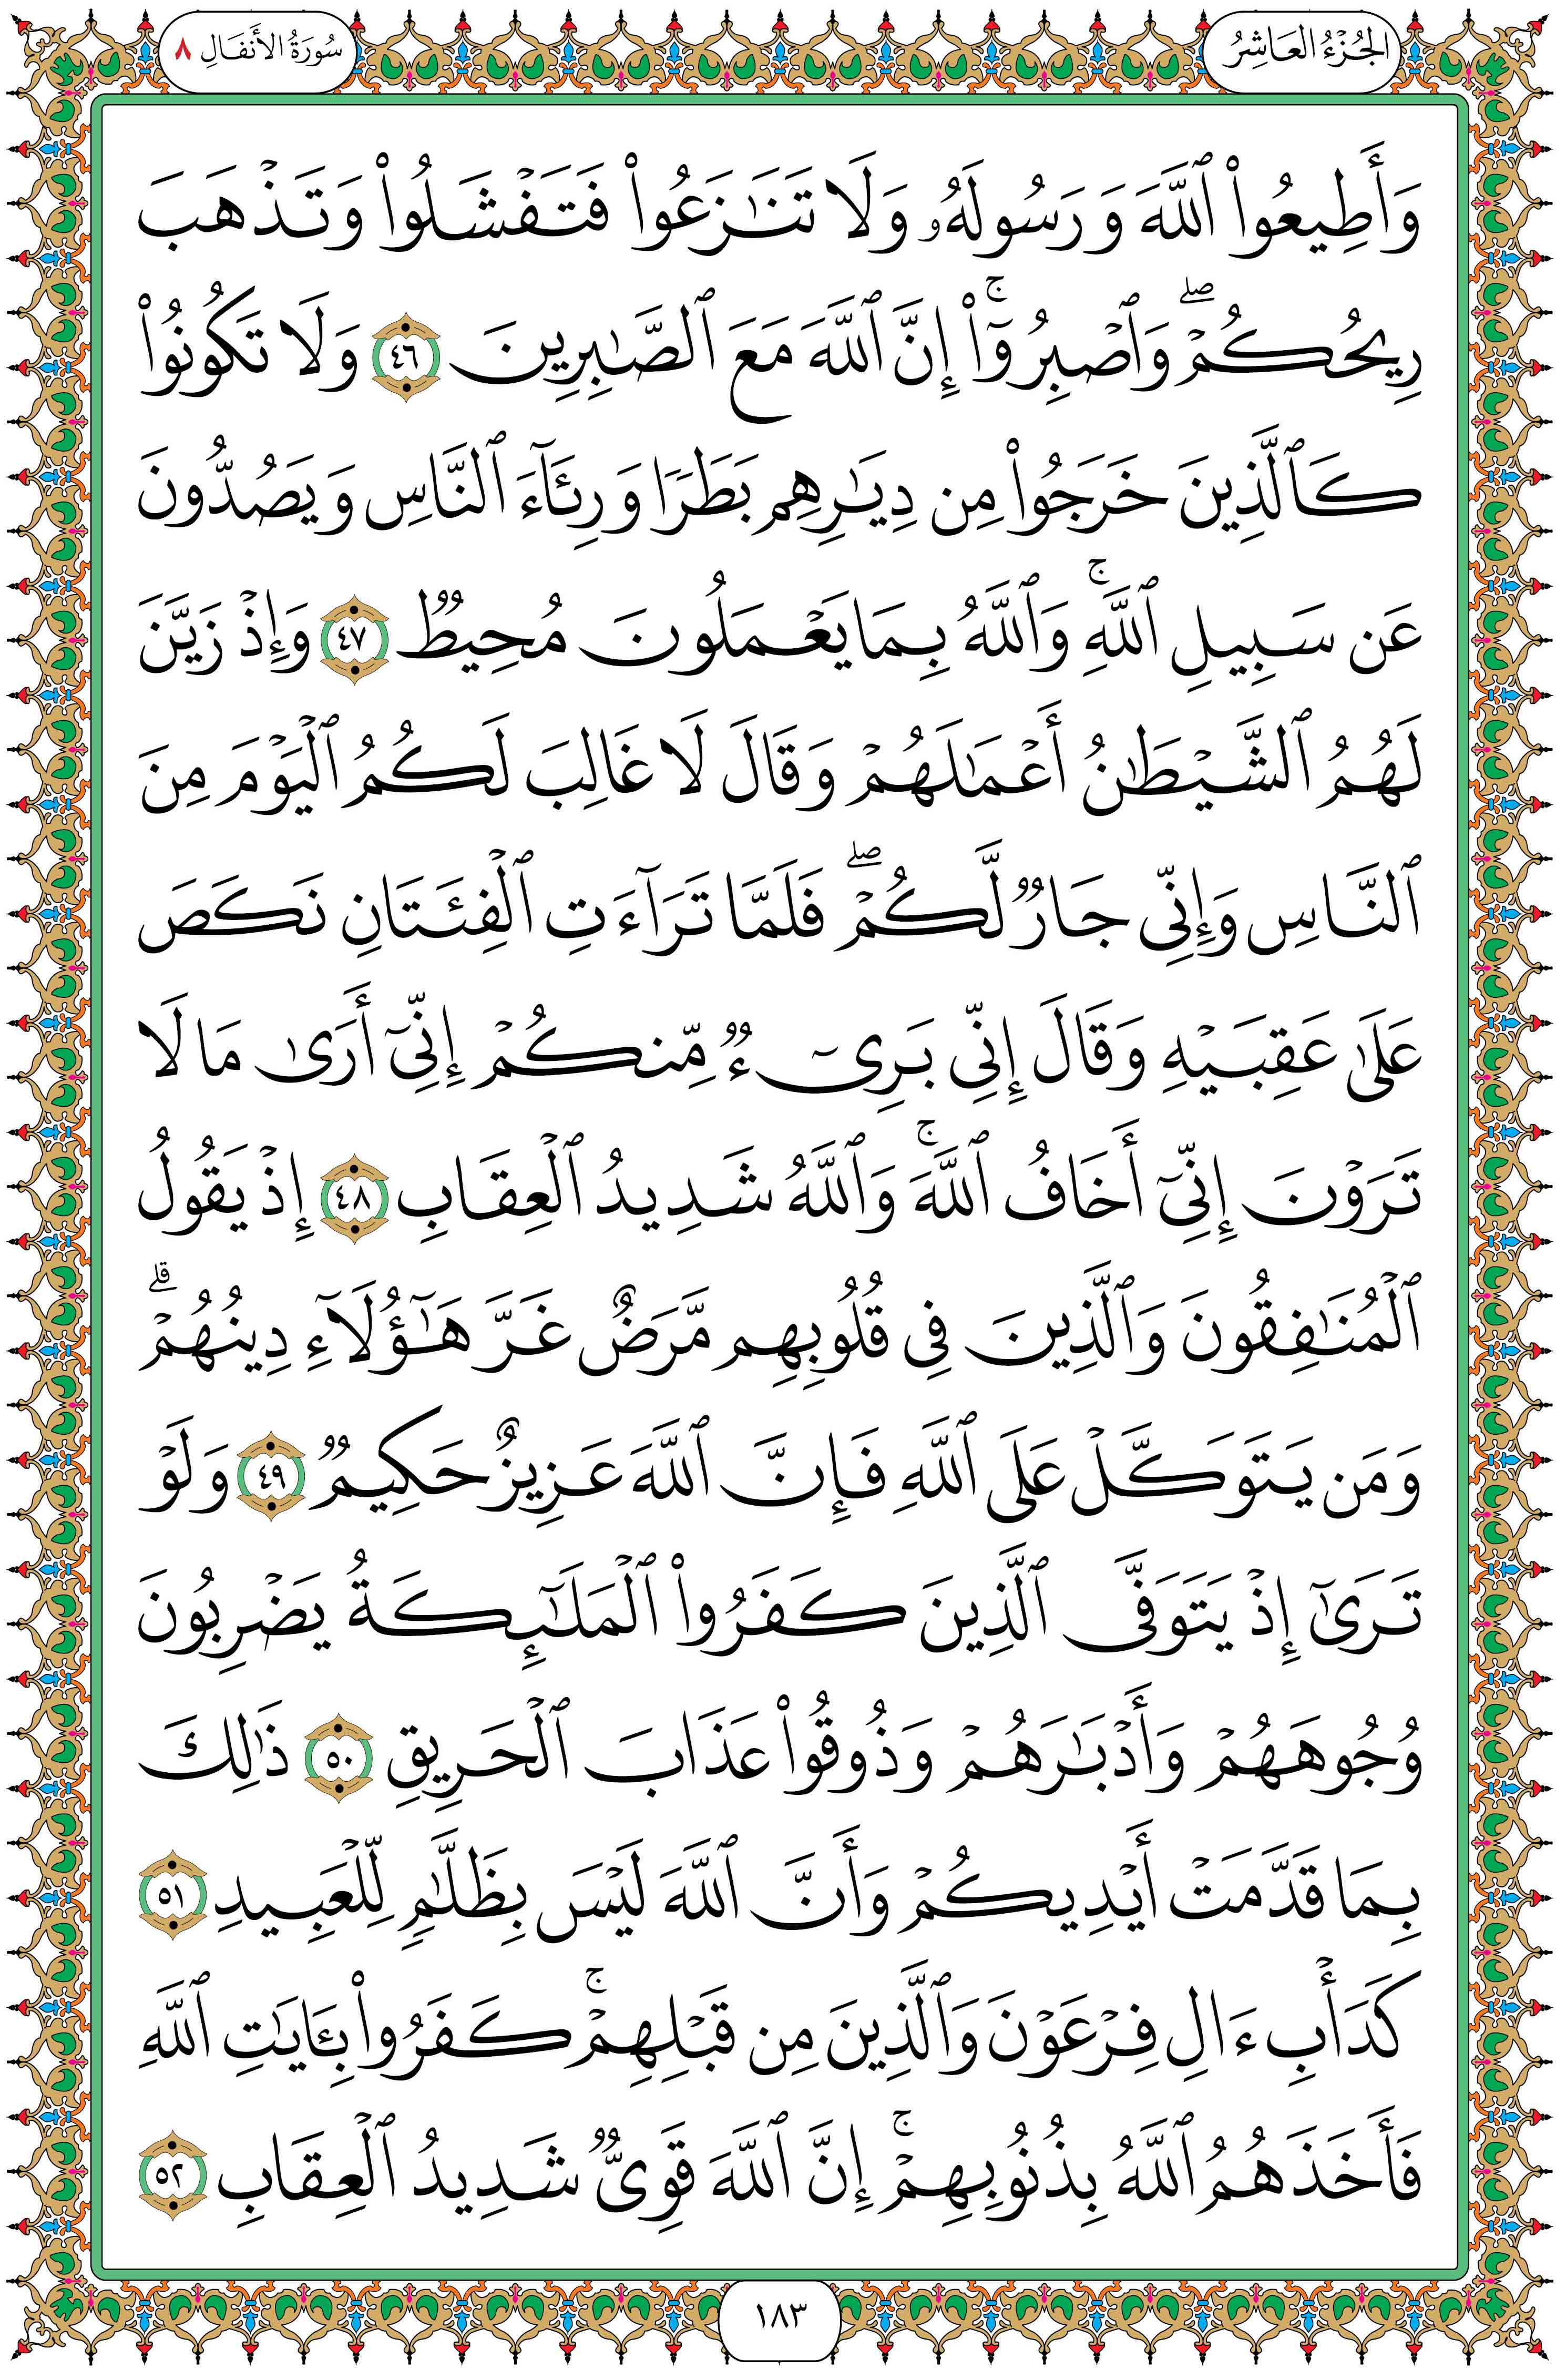 الجُزْءُ العَاشِرُ
سُورَةُ الأَنفَالِ ٨
وَأَطِيعُوا۟ ٱللَّهَ وَرَسُولَهُۥ وَلَا تَنَـٰزَعُوا۟ فَتَفْشَلُوا۟ وَتَذْهَبَ
رِيحُكُمْ ۖ وَٱصْبِرُوٓا۟ ۚ إِنَّ ٱللَّهَ مَعَ ٱلصَّـٰبِرِينَ ٤٦ وَلَا تَكُونُوا۟
كَٱلَّذِينَ خَرَجُوا۟ مِن دِيَـٰرِهِم بَطَرًا وَرِئَآءَ ٱلنَّاسِ وَيَصُدُّونَ
عَن سَبِيلِ ٱللَّهِ ۚ وَٱللَّهُ بِمَا يَعْمَلُونَ مُحِيطٌ ٤٧ وَإِذْ زَيَّنَ
لَهُمُ ٱلشَّيْطَـٰنُ أَعْمَـٰلَهُمْ وَقَالَ لَا غَالِبَ لَكُمُ ٱلْيَوْمَ مِنَ
ٱلنَّاسِ وَإِنِّى جَارٌ لَّكُمْ ۖ فَلَمَّا تَرَآءَتِ ٱلْفِئَتَانِ نَكَصَ
عَلَىٰ عَقِبَيْهِ وَقَالَ إِنِّى بَرِىٓءٌ مِّنكُمْ إِنِّىٓ أَرَىٰ مَا لَا
تَرَوْنَ إِنِّىٓ أَخَافُ ٱللَّهَ ۚ وَٱللَّهُ شَدِيدُ ٱلْعِقَابِ ٤٨ إِذْ يَقُولُ
ٱلْمُنَـٰفِقُونَ وَٱلَّذِينَ فِى قُلُوبِهِم مَّرَضٌ غَرَّ هَـٰٓؤُلَآءِ دِينُهُمْ ۗ
وَمَن يَتَوَكَّلْ عَلَى ٱللَّهِ فَإِنَّ ٱللَّهَ عَزِيزٌ حَكِيمٌ ٤٩ وَلَوْ
تَرَىٰٓ إِذْ يَتَوَفَّى ٱلَّذِينَ كَفَرُوا۟ ٱلْمَلَـٰٓئِكَةُ يَضْرِبُونَ
وُجُوهَهُمْ وَأَدْبَـٰرَهُمْ وَذُوقُوا۟ عَذَابَ ٱلْحَرِيقِ ٥٠ ذَٰلِكَ
بِمَا قَدَّمَتْ أَيْدِيكُمْ وَأَنَّ ٱللَّهَ لَيْسَ بِظَلَّـٰمٍ لِّلْعَبِيدِ ٥١
كَدَأْبِ ءَالِ فِرْعَوْنَ وَٱلَّذِينَ مِن قَبْلِهِمْ ۚ كَفَرُوا۟ بِـَٔايَـٰتِ ٱللَّهِ
فَأَخَذَهُمُ ٱللَّهُ بِذُنُوبِهِمْ ۚ إِنَّ ٱللَّهَ قَوِىٌّ شَدِيدُ ٱلْعِقَابِ ٥٢
١٨٣